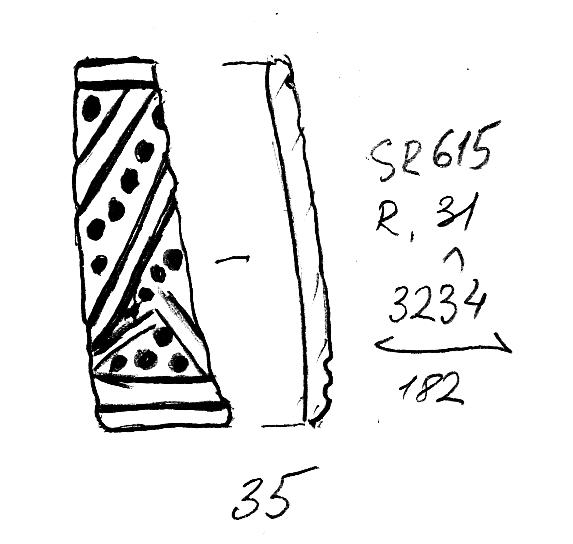 SR615
R. 31
3234
182
35